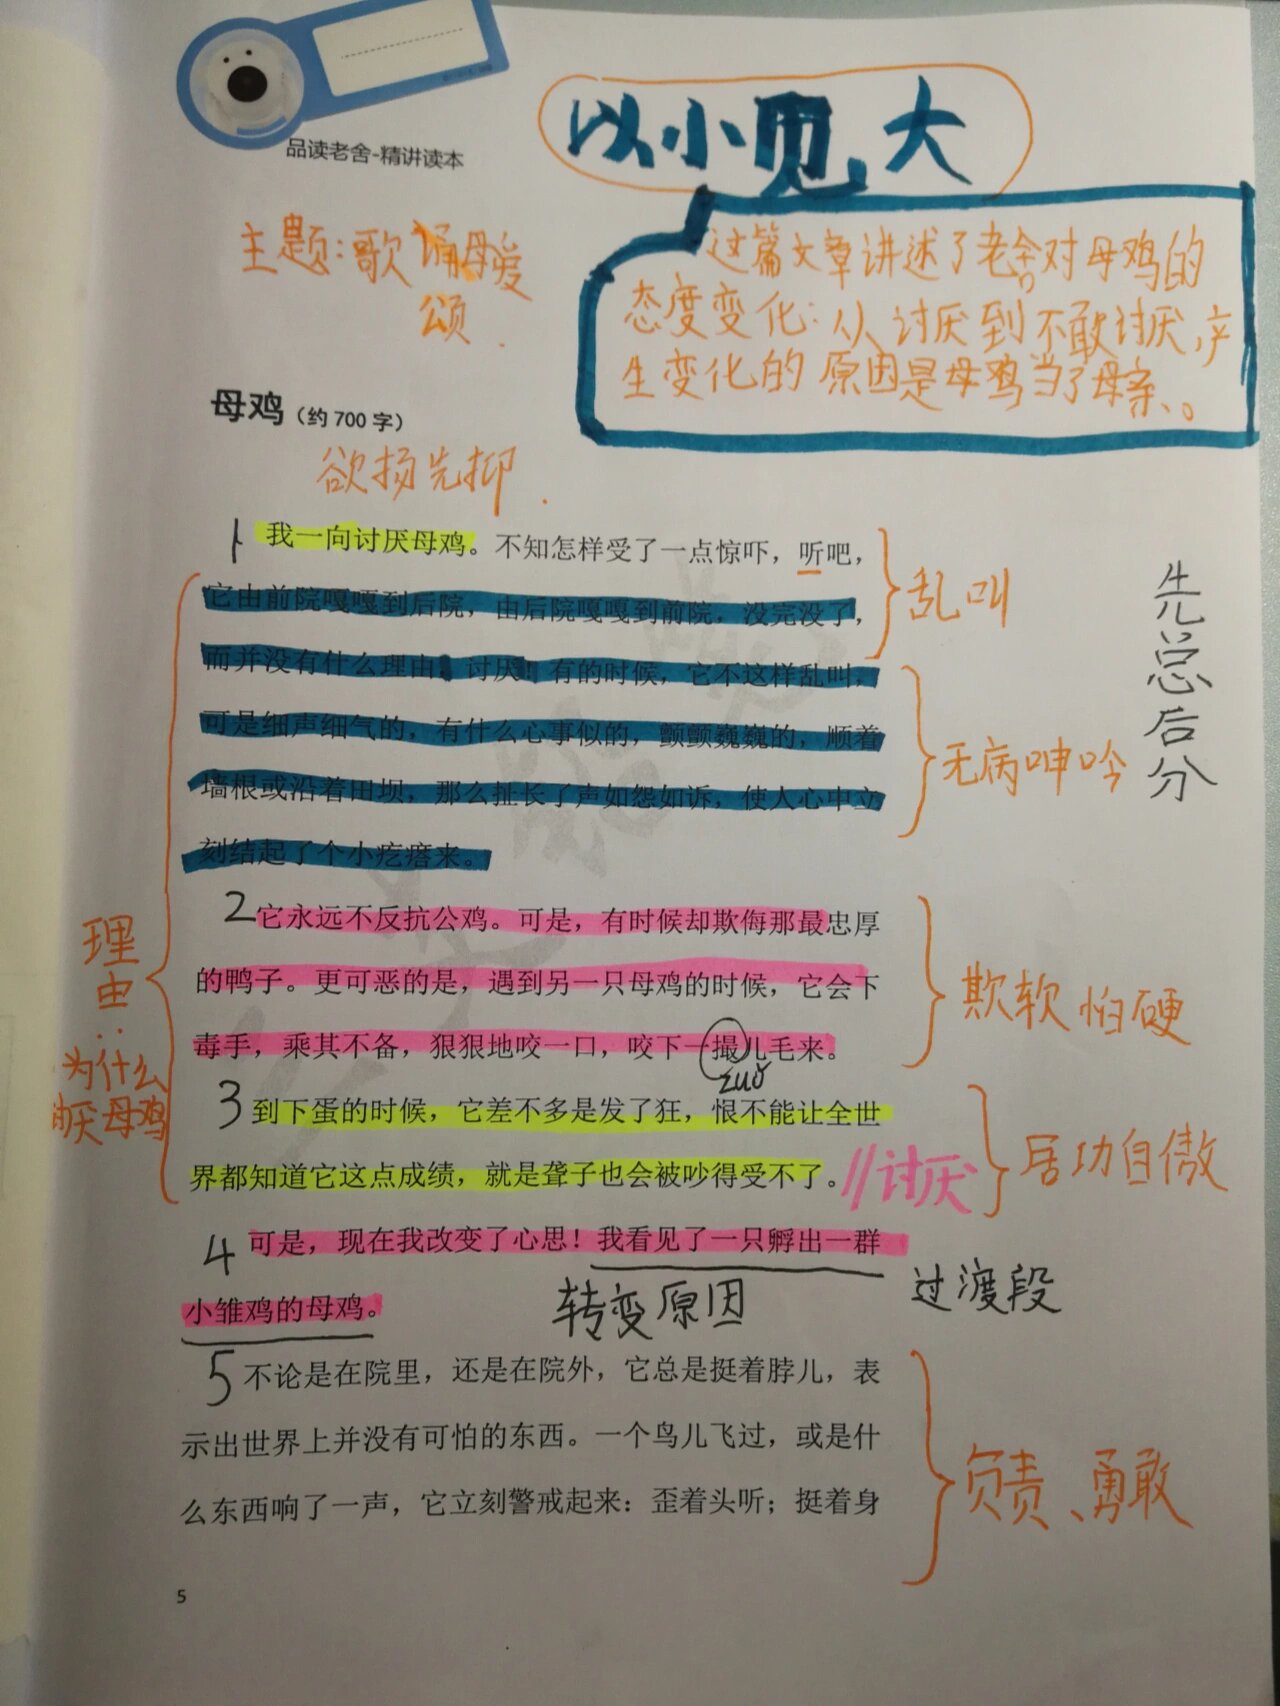 品读老舍-精讲读本
以小见大
主题:歌诵母爱
颂.
这篇文章讲述了老舍对母鸡的
态度变化:从讨厌到不敢讨厌,产
生变化的原因是母鸡当了母亲、。
母鸡(约 700 字)
欲扬先抑.
1 我一向讨厌母鸡。不知怎样受了一点惊吓，听吧，
它由前院嘎嘎到后院，由后院嘎嘎到前院，没完没了，
而并没有什么理由！讨厌！有的时候，它不这样乱叫，
可是细声细气的，有什么心事似的，颤颤巍巍的，顺着
墙根或沿着田坝，那么扯长了声如怨如诉，使人心中立
刻结起了个小疙瘩来。
乱叫
无病呻吟
先总后分
2 它永远不反抗公鸡。可是，有时候却欺侮那最忠厚
的鸭子。更可恶的是，遇到另一只母鸡的时候，它会下
毒手，乘其不备，狠狠地咬一口，咬下一撮儿毛来。
zuǒ
欺软怕硬
理由:
为什么
讨厌母鸡
3 到下蛋的时候，它差不多是发了狂，恨不能让全世
界都知道它这点成绩，就是聋子也会被吵得受不了。//讨厌
居功自傲
4 可是，现在我改变了心思！我看见了一只孵出一群
小雏鸡的母鸡。
转变原因
过渡段
5 不论是在院里，还是在院外，它总是挺着脖儿，表
示出世界上并没有可怕的东西。一个鸟儿飞过，或是什
么东西响了一声，它立刻警戒起来：歪着头听；挺着身
负责、勇敢
5